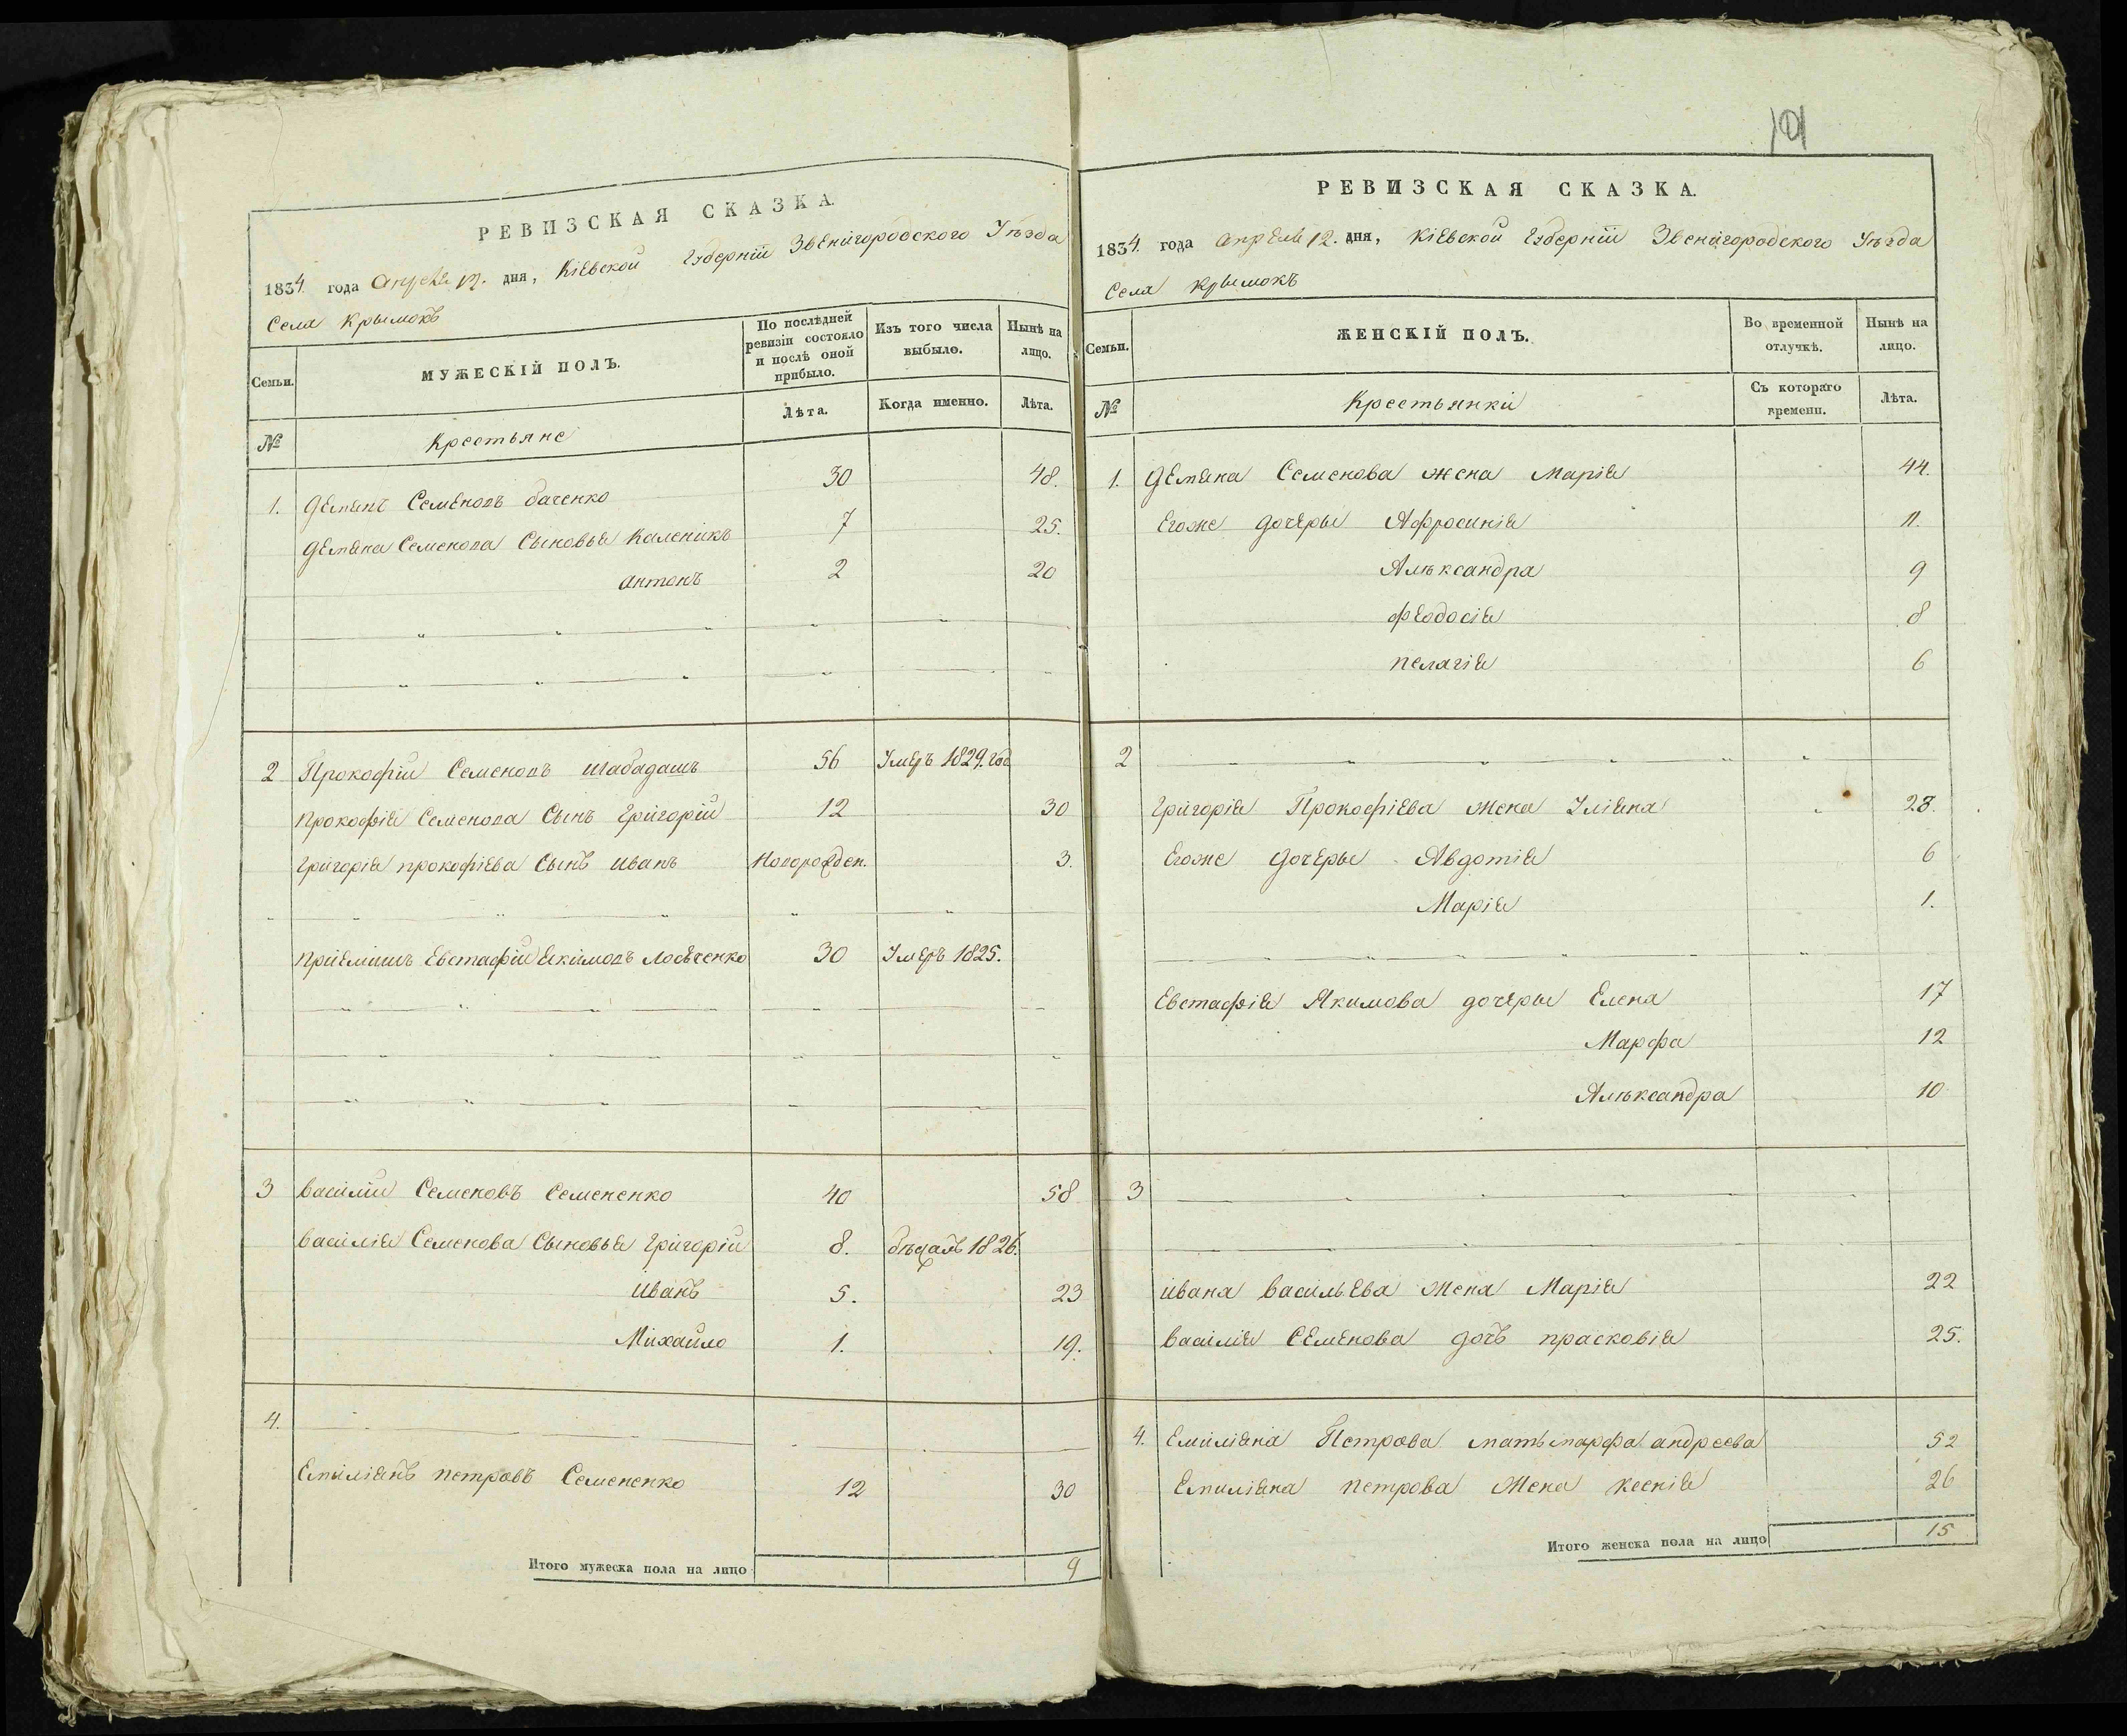 РЕВИЗСКАЯ СКАЗКА.
1834. года Апреля 12. дня, Кіевской Губерніи Звенигородского Уѣзда
Села Крымокъ
Семьи.
МУЖЕСКІЙ ПОЛЪ.
По послѣдней ревизіи состояло и послѣ оной прибыло.
Изъ того числа выбыло.
Нынѣ на лицо.
№
Крестьяне
Лѣта.
Когда именно.
Лѣта.
1. Демянъ Семеновъ Баченко 30 48.
Демяна Семенова Сыновья Каленикъ 7 25.
Антонъ 2 20
2 Прокофій Семеновъ Шабадашъ 56 Умеръ 1829. год
Прокофія Семенова Сынъ Григорій 12 30
Григорія Прокофіева Сынъ Иванъ Новорожден. 3.
Пріемышъ Евстафій Якимовъ 30 Умеръ 1825.
3 Василій Семеновъ Семененко 40 58
Василія Семенова Сыновья Григорій 8. бѣжалъ 1826.
Иванъ 5. 23
Михайло 1. 19.
4.
Емиліянъ Петровъ Семененко 12 30
Итого мужеска пола на лицо 9
101
РЕВИЗСКАЯ СКАЗКА.
1834. года Апреля 12. дня, Кіевской Губерніи Звенигородского Уѣзда
Села Крымокъ
Семьи.
ЖЕНСКІЙ ПОЛЪ.
Во временной отлучкѣ.
Нынѣ на лицо.
№
Крестьянки
Съ котораго времени.
Лѣта.
1. Демяна Семенова жена Марія 44.
Егоже дочеры Афросинія 11.
Алѣксандра 9
Феодосія 8
Пелагія 6
2
Григорія Прокофіева Жена Уліяна 28.
Егоже дочеры Авдотія 6
Марія 1.
Евстафія Якимова дочеры Елена 17
Марфа 12
Алѣксандра 10
3
Ивана Васильева Жена Марія 22
Василія Семенова дочъ Прасковія 25.
4. Емиліяна Петрова мать Марфа Андреева 52
Емиліяна Петрова Жена Ксенія 26
Итого женска пола на лицо 15